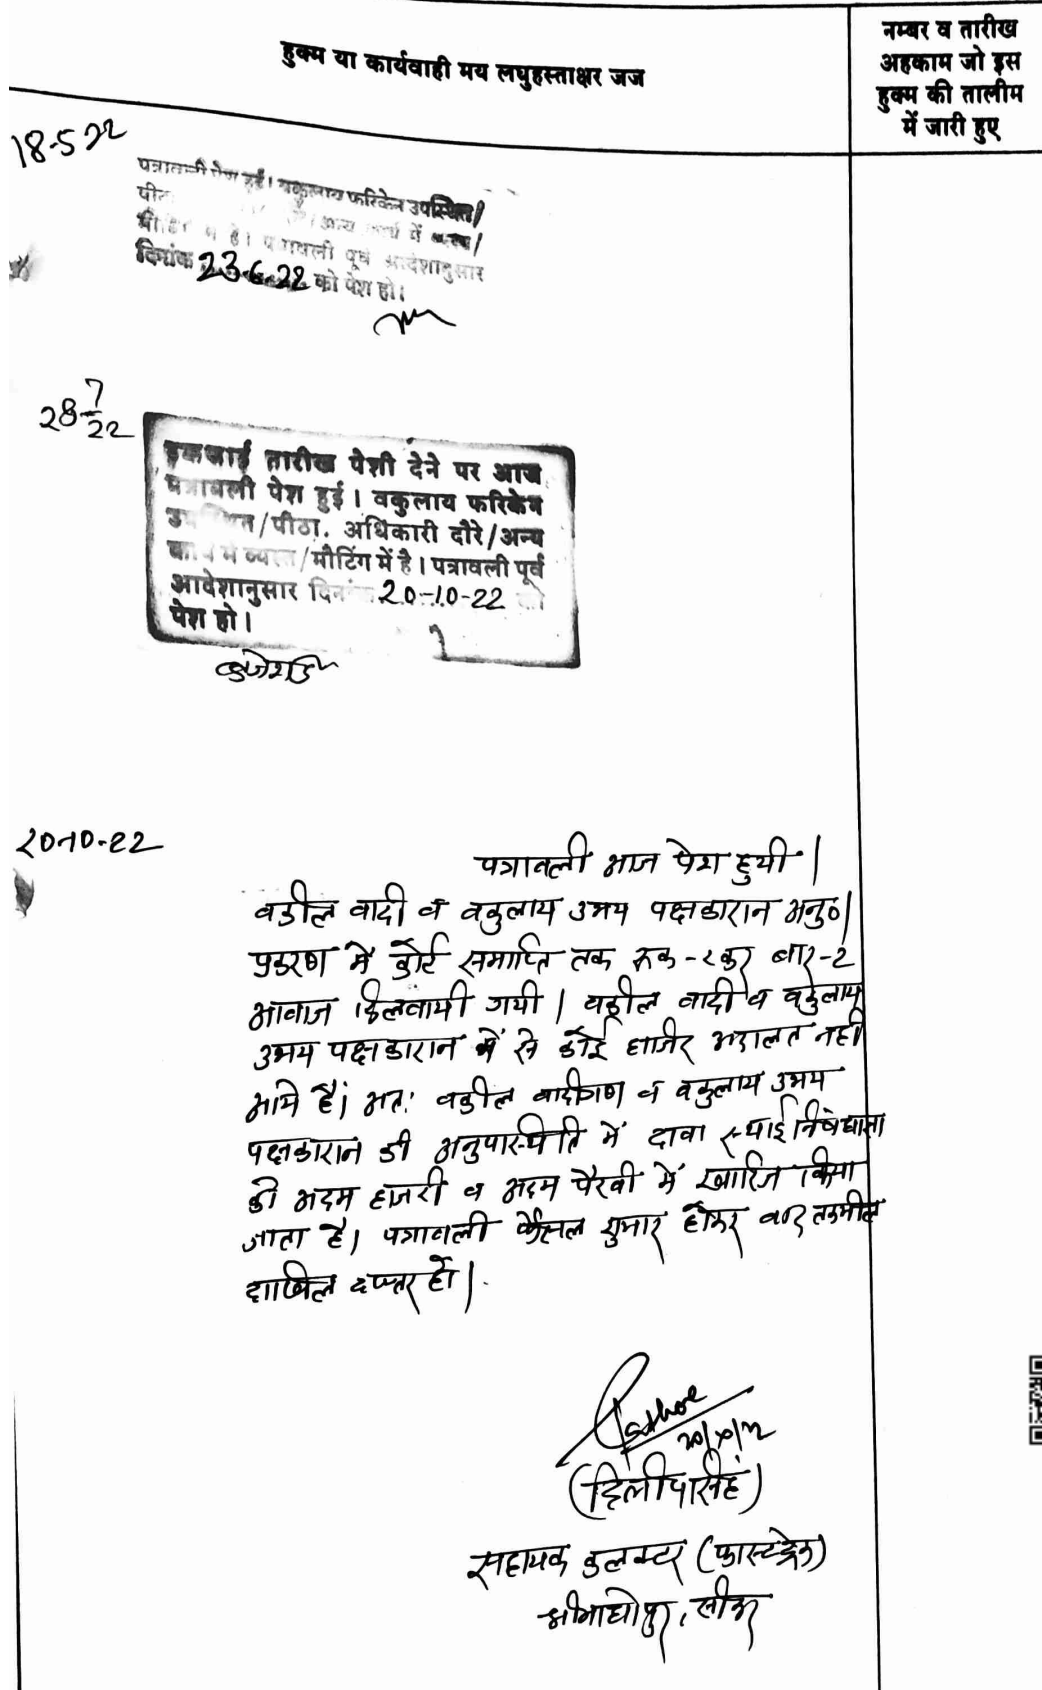 हुक्म या कार्यवाही मय लघुहस्ताक्षर जज
नम्बर व तारीख
अहकाम जो इस
हुक्म की तालीम
में जारी हुए
18-5-22
पत्रावली पेश हुई। वकुलाय फरिकेन उपस्थित/
अन्य कार्य में व्यस्त/
पत्रावली पूर्व आदेशानुसार
दिनांक 23-6-22 को पेश हो।
28-7/22
इकजाई तारीख पेशी देने पर आज
पत्रावली पेश हुई। वकुलाय फरिकेन
उपस्थित/पीठा. अधिकारी दौरे/अन्य
कार्य में व्यस्त/मीटिंग में है। पत्रावली पूर्व
आदेशानुसार दिनांक 20-10-22 को
पेश हो।
20-10-22
पत्रावली आज पेश हुयी।
वकील वादी व वकुलाय उभय पक्षकारान अनु०।
प्रकरण में कोर्ट समाप्ति तक रूक-रूकर बार-2
आवाज दिलवायी गयी। वकील वादी व वकुलाय
उभय पक्षकारान में से कोई हाजिर अदालत नही
आये है। अतः वकील वादीगण व वकुलाय उभय
पक्षकारान की अनुपस्थिति में दावा स्थाई निषेधाज्ञा
को अदम हाजरी व अदम पैरवी में खारिज किया
जाता है। पत्रावली फैसल शुमार होकर बाद तकमील
दाखिल दफ्तर हो।
20/10/22
(दिलीपसिंह)
सहायक कलक्टर (फास्टट्रेक)
श्रीमाधोपुर, सीकर